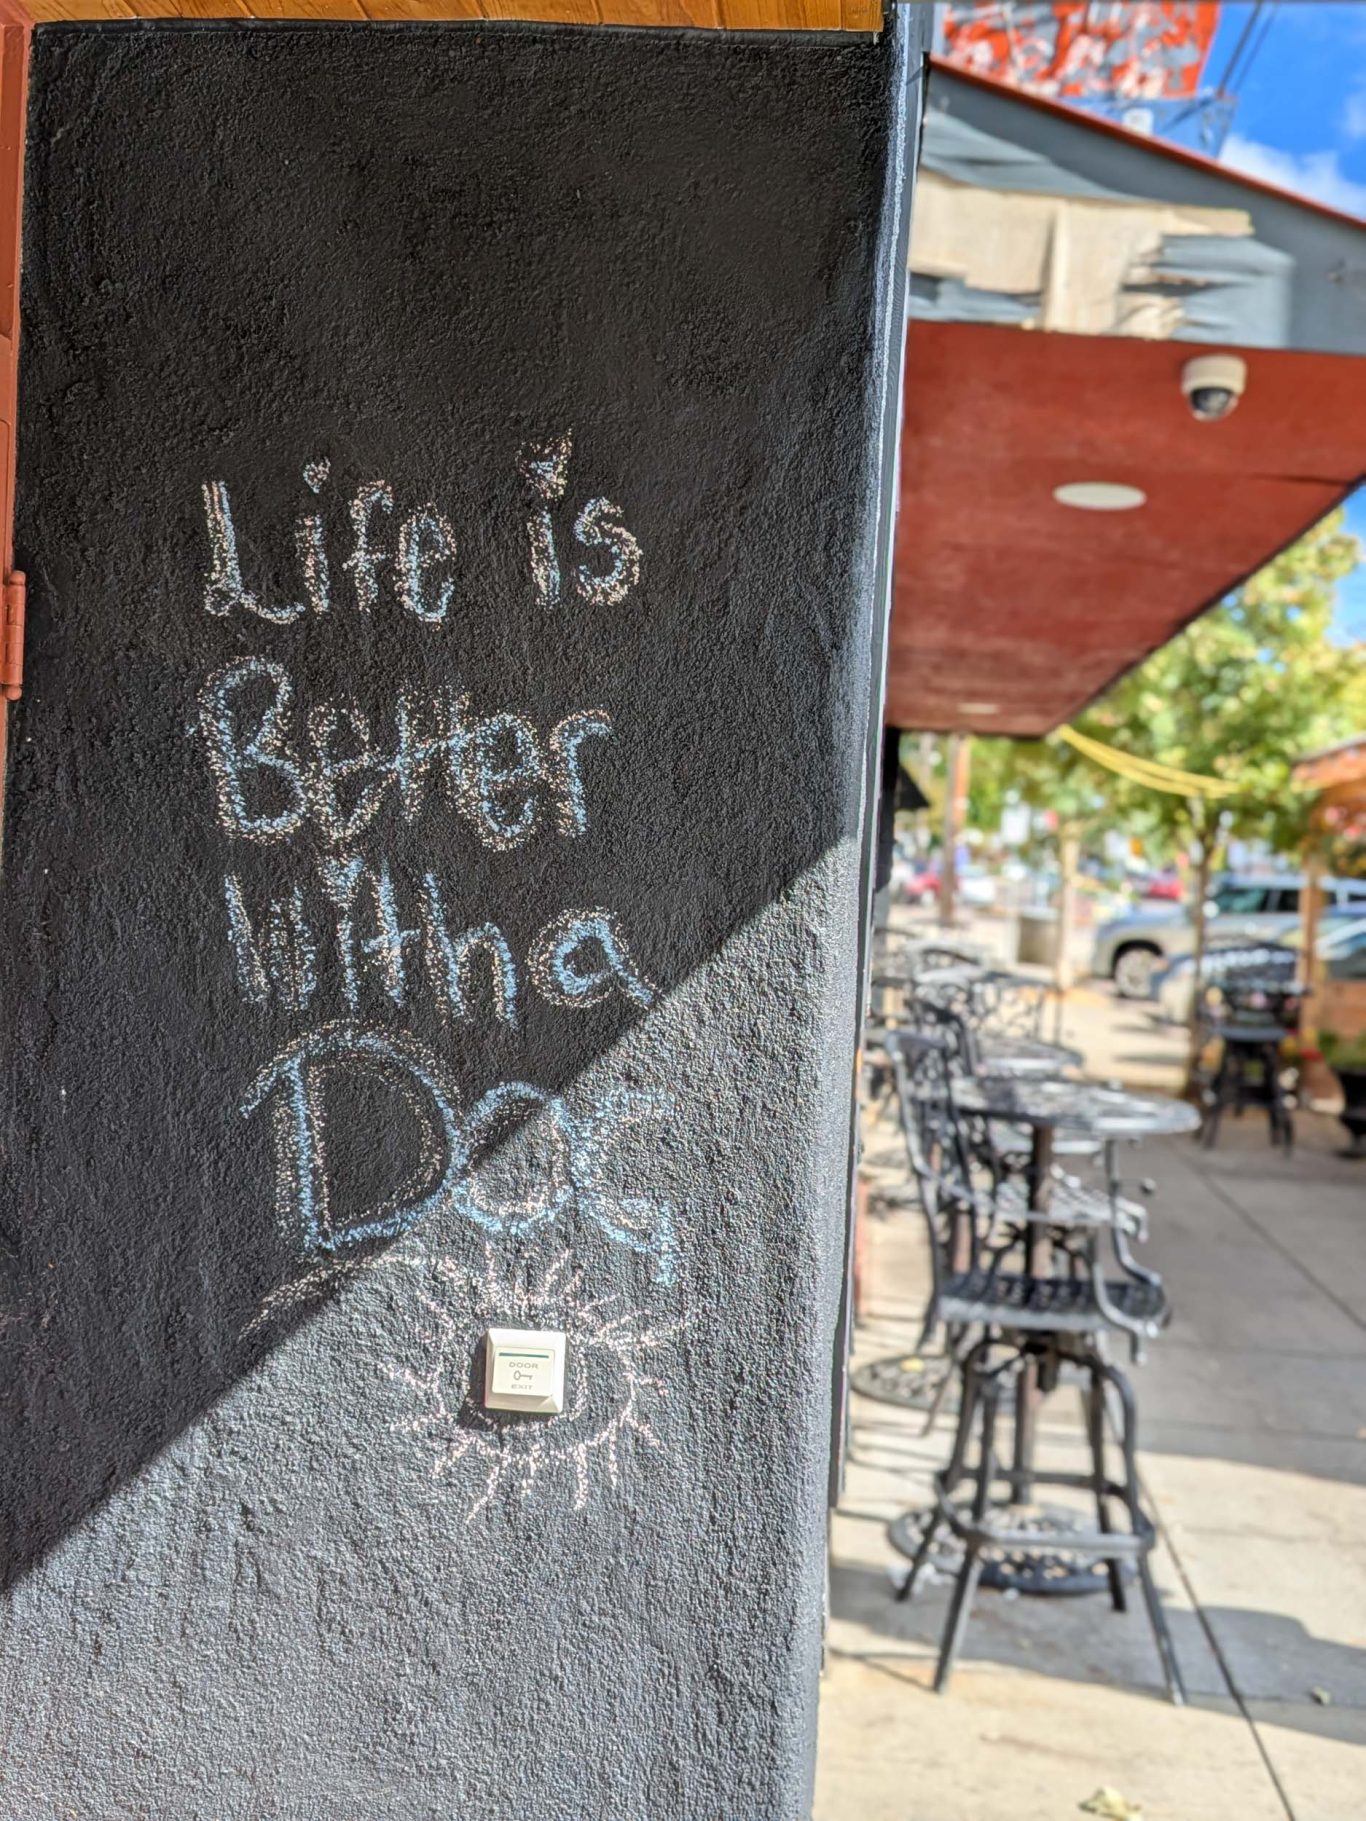 Life is
Better
With a
Dog
DOOR
EXIT